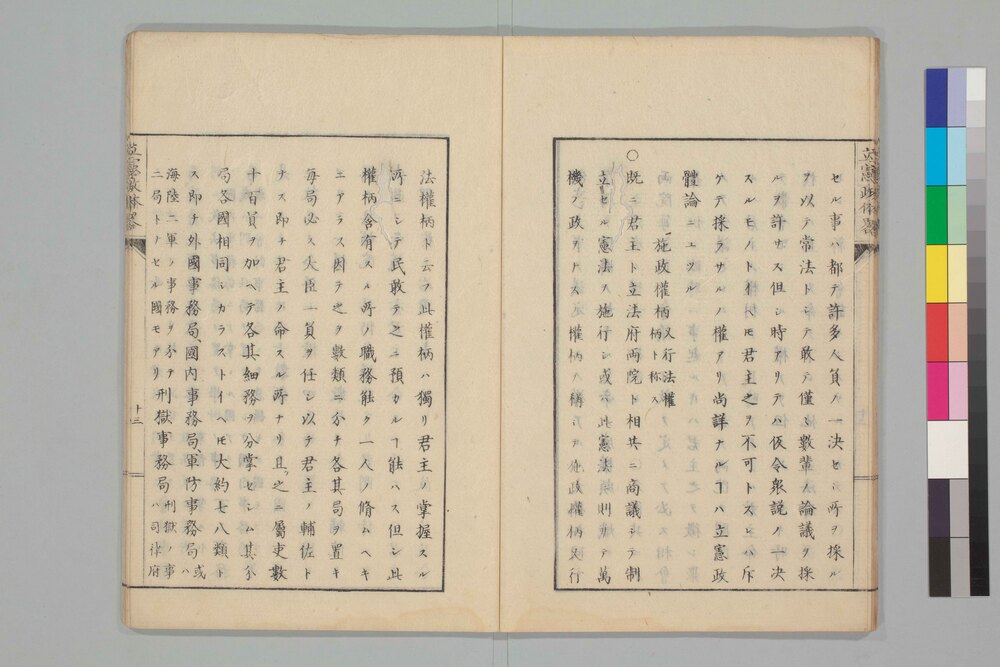 立憲政体略
セル事ハ都テ許多人員ノ一決セシ所ヲ採ル
ヲ以テ常法トシテ敢テ僅々數輩ノ論議ヲ採
ルヲ許サス但シ時アリテハ仮令衆説ノ一決
スルモノト雖ヘモ君主之ヲ不可トスレハ斥
ケテ採ラサルノ權アリ尚詳ナルヿハ立憲政
體論ニユツル
施政權柄 又行法權柄ト称ス
○既ニ君主ト立法府両院ト相共ニ商議シテ制
立セル憲法ヲ施行シ或ハ此憲法ニ則リテ萬
機ノ政ヲナスノ權柄ヲ稱シテ施政權柄又行
法權柄ト云フ此權柄ハ獨リ君主ノ掌握スル
所ニシテ民敢テ之ニ預カルヿ能ハス但シ此
權柄含有スル所ノ職務能ク一人ノ脩ムヘキ
ニアラス因テ之ヲ數類ニ分チ各其局ヲ置キ
毎局必ス大臣一員ヲ任シ以テ君主ノ輔佐ト
ナス即チ君主ノ命スル所ナリ且ツ之ニ屬吏數
十百員ヲ加ヘテ各其細務ヲ分掌セシム其分
局各國相同シカラスト イヘモ大約七八類ト
ス即チ外國事務局、國内事務局、軍防事務局 或ハ
海陸二軍ノ事務ヲ分テ二局トナセル國モアリ 刑獄事務局 刑獄ノ事ハ司律府
立憲政体略
十三